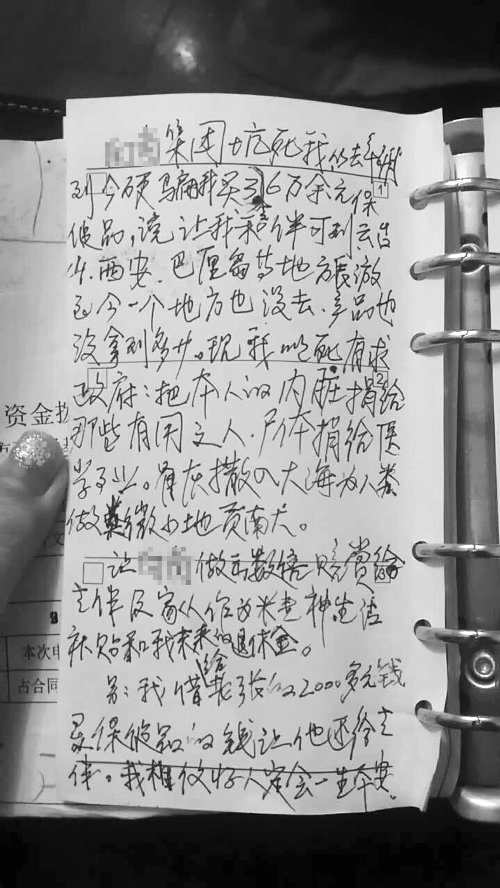 集团坑死我从去年
到今硬骗我买了6万余元保
健品,说让我和伴可到云台
山、西安、巴厘岛等地方旅游
至今一个地方也没去,产品也
没拿到多少。现我以死有求
政府:把本人的内脏捐给
那些有用之人,尸体捐给医
学事业。骨灰撒入大海为人类
做微小地贡献。
让 做出数倍赔赏给
老伴及家人作为米老神生活
补贴和我未来的退休金。
另:我借给张的2000多元钱
是保健品的钱让他还给老
伴。我相信好人定会一生平安
资金
本次
占合同